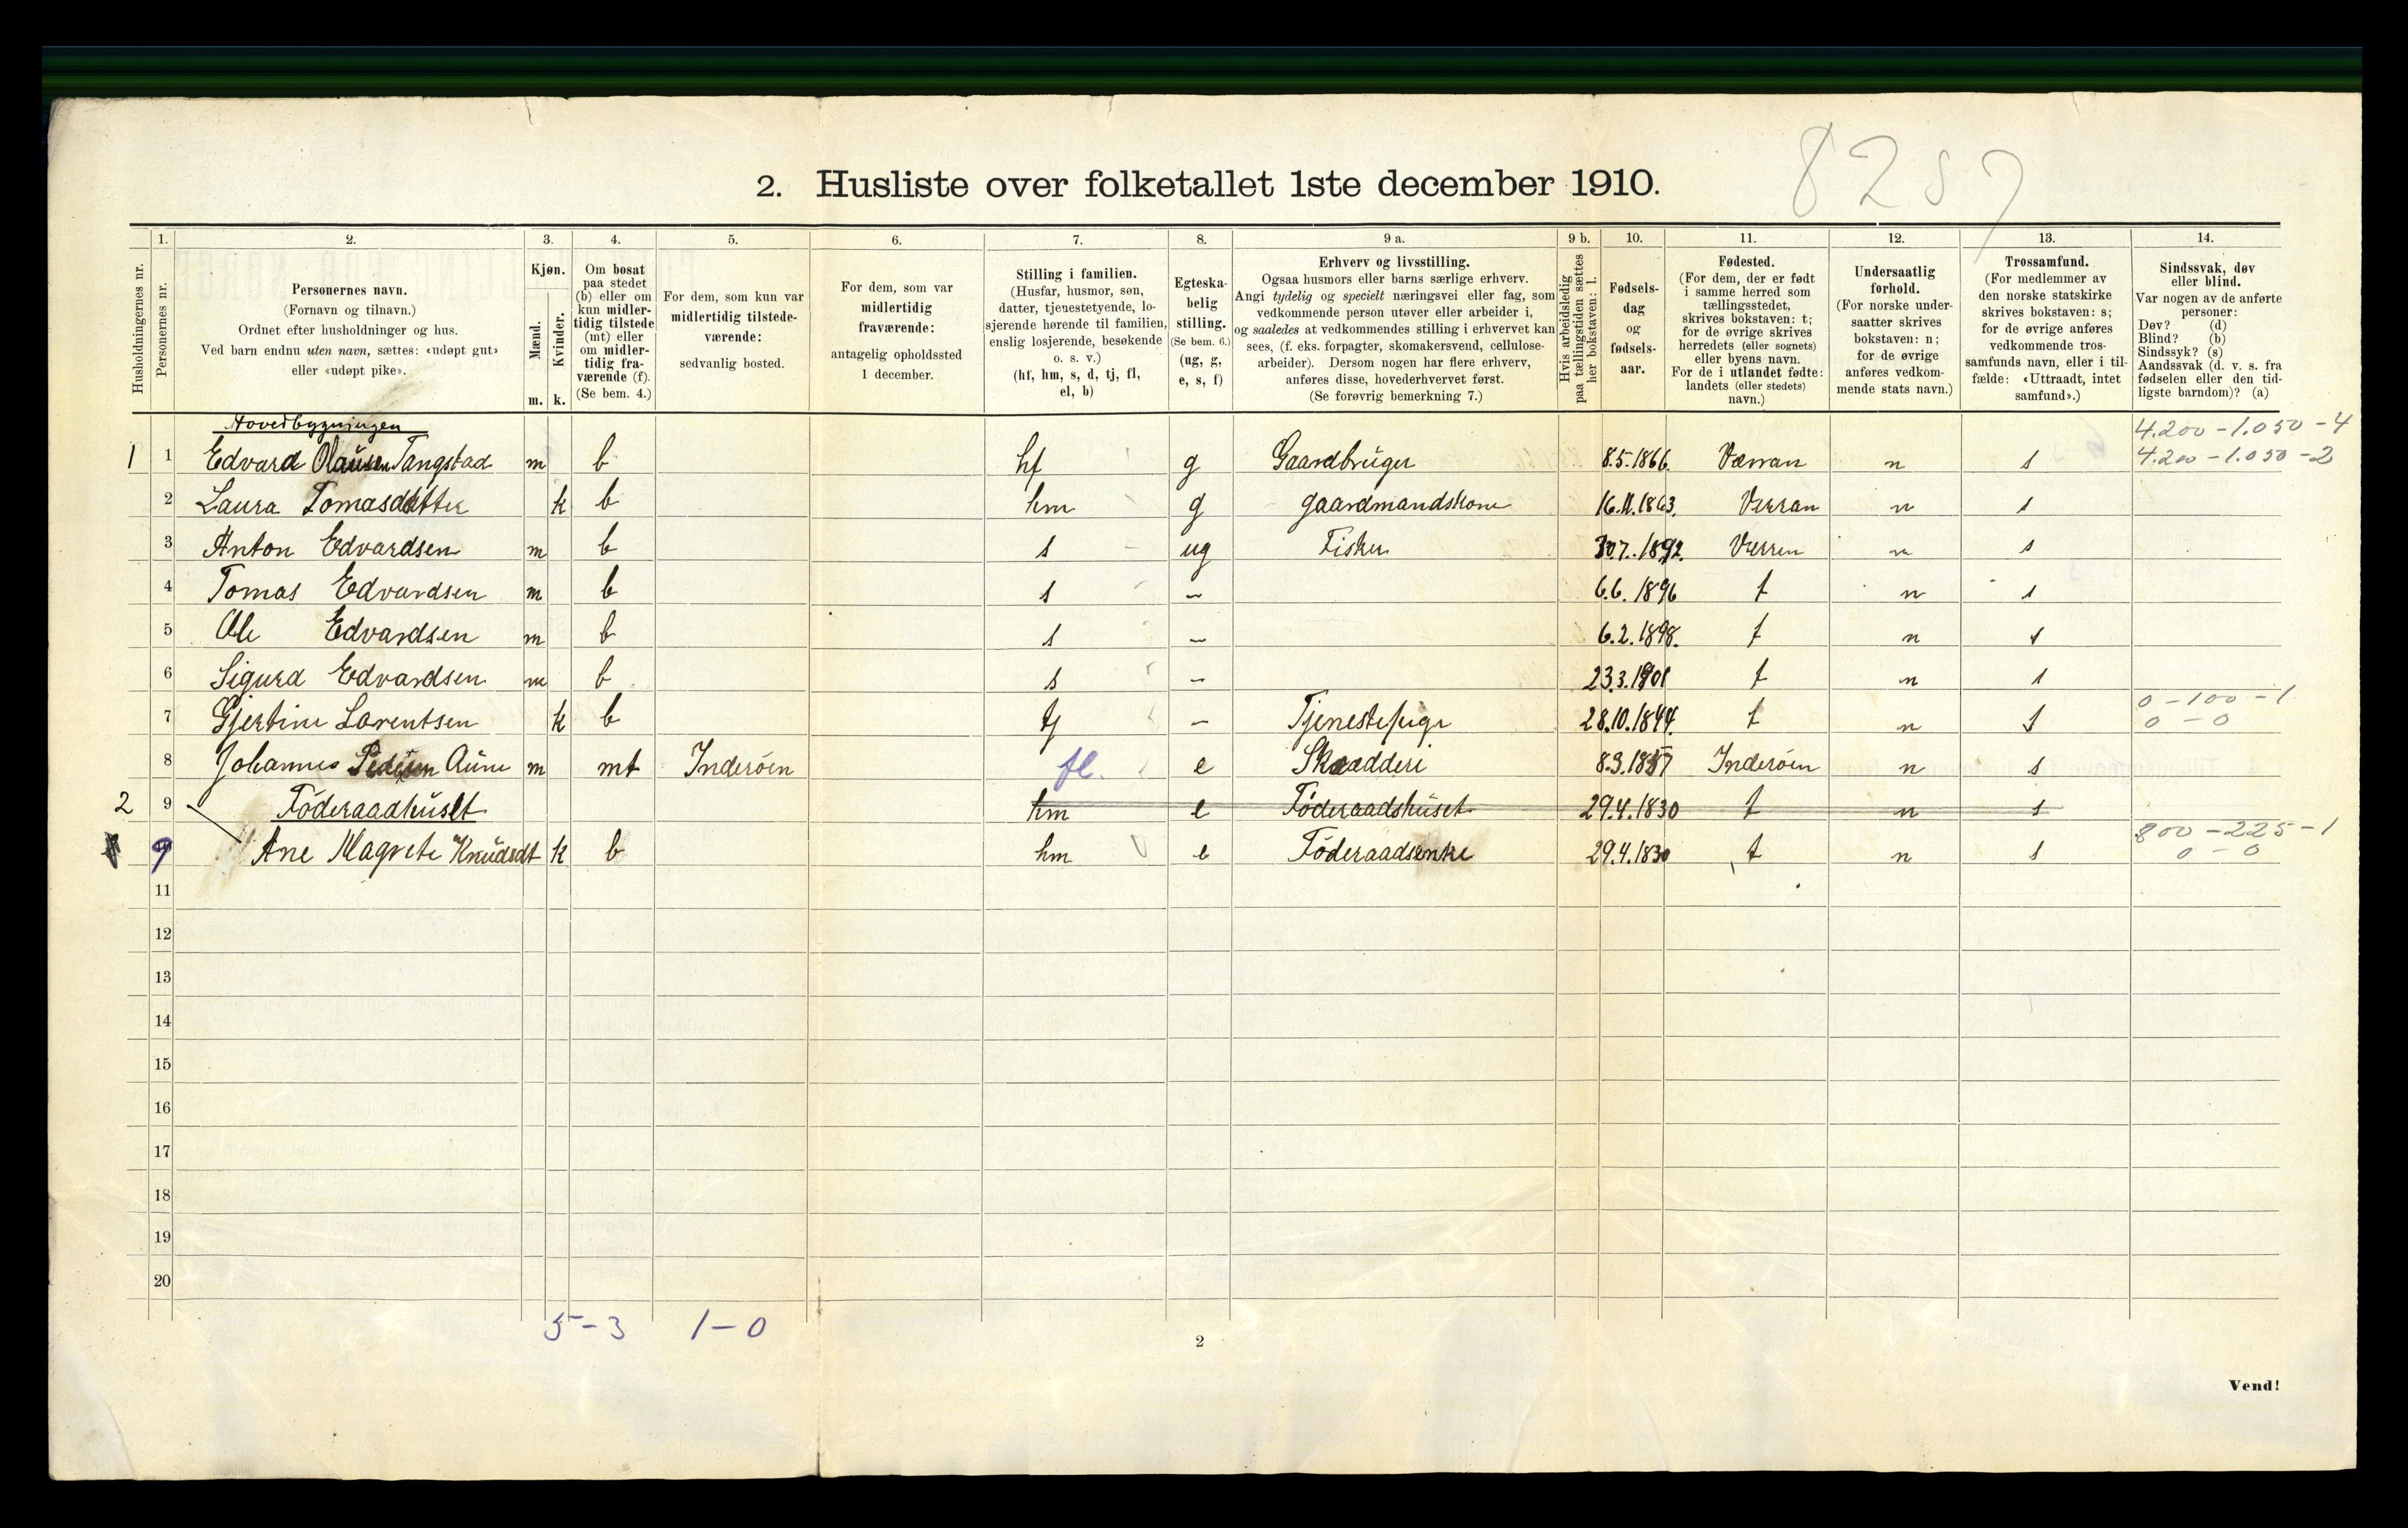 8287
2. Husliste over folketallet 1ste december 1910.
Husholdningernes nr.
1. Personernes nr.
2. Personernes navn. (Fornavn og tilnavn.) Ordnet efter husholdninger og hus. Ved barn endnu uten navn, sættes: «udøpt gut» eller «udøpt pike».
3. Kjøn. Mænd. m. Kvinder. k.
4. Om bosat paa stedet (b) eller om kun midlertidig tilstede (mt) eller om midlertidig fraværende (f). (Se bem. 4.)
5. For dem, som kun var midlertidig tilstedeværende: sedvanlig bosted.
6. For dem, som var midlertidig fraværende: antagelig opholdssted 1 december.
7. Stilling i familien. (Husfar, husmor, søn, datter, tjenestetyende, losjerende hørende til familien, enslig losjerende, besøkende o. s. v.) (hf, hm, s, d, tj, fl, el, b)
8. Egteskabelig stilling. (Se bem. 6.) (ug, g, e, s, f)
9 a. Erhverv og livsstilling. Ogsaa husmors eller barns særlige erhverv. Angi tydelig og specielt næringsvei eller fag, som vedkommende person utøver eller arbeider i, og saaledes at vedkommendes stilling i erhvervet kan sees, (f. eks. forpagter, skomakersvend, cellulosearbeider). Dersom nogen har flere erhverv, anføres disse, hovederhvervet først. (Se forøvrig bemerkning 7.)
9 b. Hvis arbeidsledig paa tællingstiden sættes her bokstaven: l.
10. Fødselsdag og fødselsaar.
11. Fødested. (For dem, der er født i samme herred som tællingsstedet, skrives bokstaven: t; for de øvrige skrives herredets (eller sognets) eller byens navn. For de i utlandet fødte: landets (eller stedets) navn.)
12. Undersaatlig forhold. (For norske undersaatter skrives bokstaven: n; for de øvrige anføres vedkommende stats navn.)
13. Trossamfund. (For medlemmer av den norske statskirke skrives bokstaven: s; for de øvrige anføres vedkommende trossamfunds navn, eller i tilfælde: «Uttraadt, intet samfund».)
14. Sindssvak, døv eller blind. Var nogen av de anførte personer: Døv? (d) Blind? (b) Sindssyk? (s) Aandssvak (d. v. s. fra fødselen eller den tidligste barndom)? (a)
Hovedbygningen
4.200 - 1.050 - 4
1 1 Edvard Olausen Tangstad m b hf g Gaardbruger 8.5.1866. Værran n s 4.200 - 1.050 - 2
2 Laura Tomasdatter k b hm g gaardmandskone 16.11.1863. Verran n s
3 Anton Edvardsen m b s ug Fisker 30.7.1892. Verren n s
4 Tomas Edvardsen m b s – 6.6.1896 t n s
5 Ole Edvardsen m b s – 6.2.1898. t n s
6 Sigurd Edvardsen m b s – 23.3.1901 t n s
0 - 100 - 1
7 Gjertine Lorentsen k b tj – Tjenestepige 28.10.1844. t n s 0 - 0
8 Johannes Pedersen Aune m mt Inderöen fl. e Skrædderi 8.3.1857 Inderöen n s
2 9 Föderaadhuset hm e Föderaadshuset 29.4.1830 t n s
800 - 225 - 1
9 Ane Magrete Knudsdt k b hm e Föderaadsenke 29.4.1830 t n s 0 - 0
11
12
13
14
15
16
17
18
19
20
5 - 3 1 - 0
2
Vend!